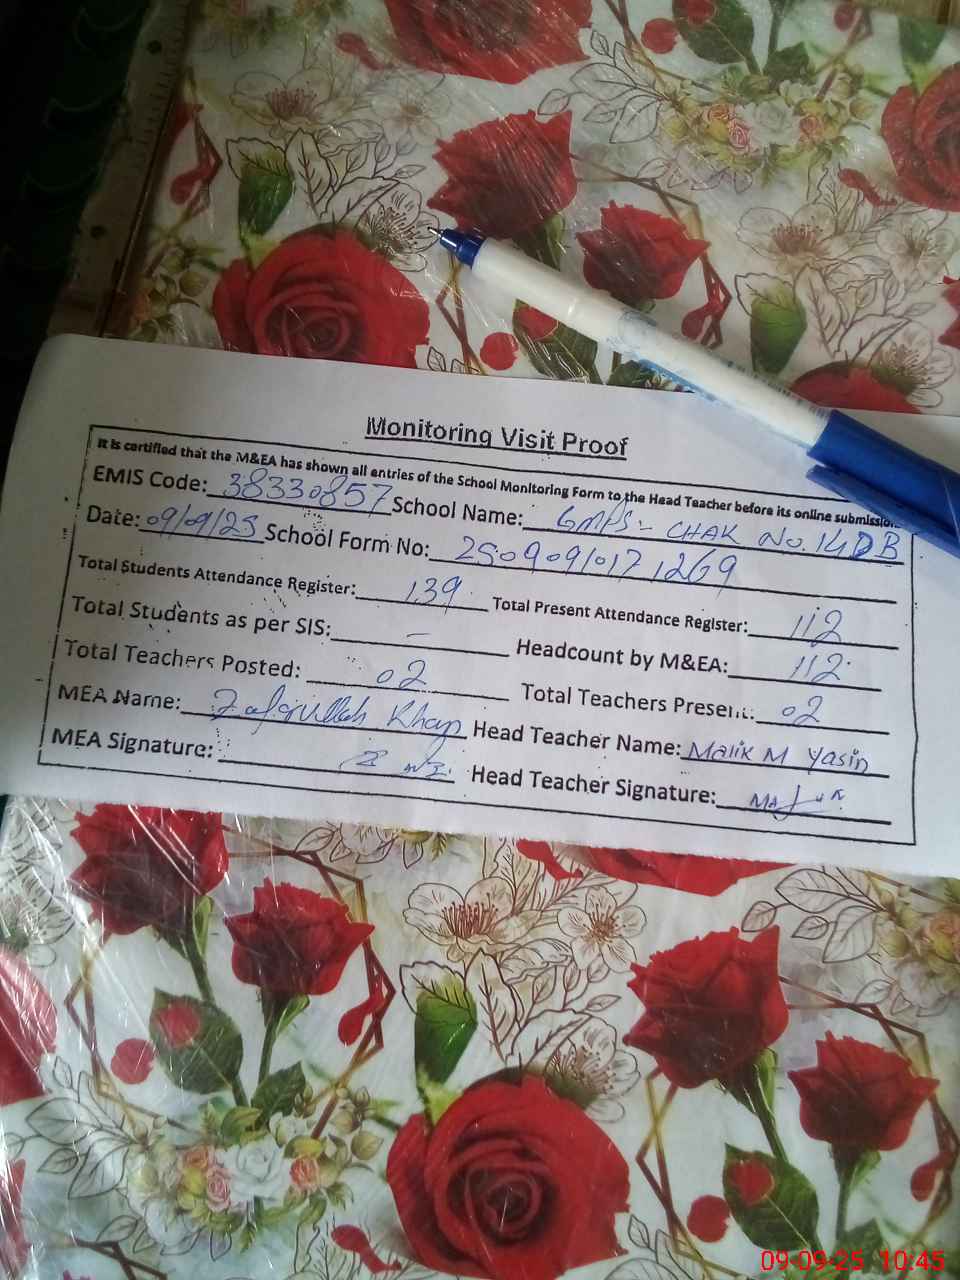 Monitoring Visit Proof
It is certified that the M&EA has shown all entries of the School Monitoring Form to the Head Teacher before its online submission.
EMIS Code: 38330857 School Name: GMPS - CHAK No. 14DB
Date: 09/09/25 School Form No: 25090910171269
Total Students Attendance Register: 139 Total Present Attendance Register: 112
Total Students as per SIS: - Headcount by M&EA: 112
Total Teachers Posted: 02 Total Teachers Present: 02
MEA Name: Zafarullah Khan Head Teacher Name: Malik M Yasin
MEA Signature: Head Teacher Signature:
09-09-25 10:45